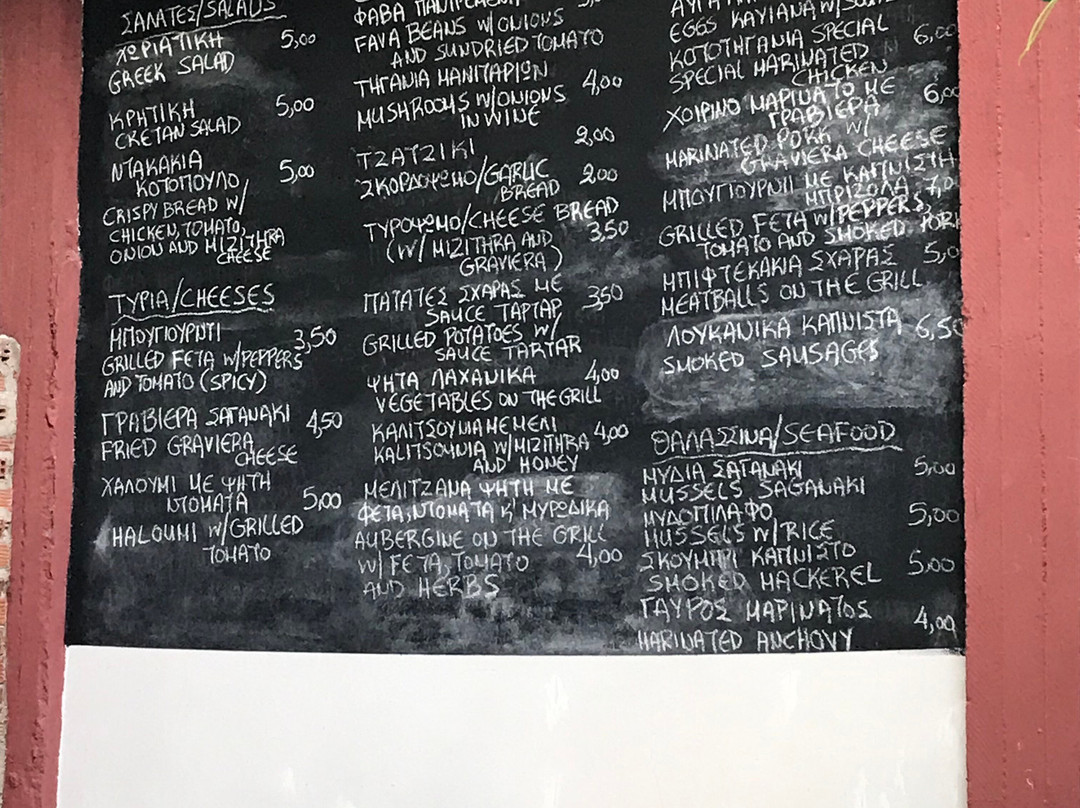 ΣΑΛΑΤΕΣ/SALADS
ΧΩΡΙΑΤΙΚΗ 5,00
GREEK SALAD
ΚΡΗΤΙΚΗ 5,00
CRETAN SALAD
ΝΤΑΚΑΚΙΑ
ΚΟΤΟΠΟΥΛΟ 5,00
CRISPY BREAD W/
CHICKEN, TOMATO,
ONION AND MIZITHRA
CHEESE
ΤΥΡΙΑ/CHEESES
ΜΠΟΥΓΙΟΥΡΝΤΙ 3,50
GRILLED FETA W/PEPPERS
AND TOMATO (SPICY)
ΓΡΑΒΙΕΡΑ ΣΑΓΑΝΑΚΙ 4,50
FRIED GRAVIERA
CHEESE
ΧΑΛΟΥΜΙ ΜΕ ΨΗΤΗ
ΝΤΟΜΑΤΑ 5,00
HALOUMI W/GRILLED
TOMATO
ΦΑΒΑ
FAVA BEANS W/ONIONS
AND SUNDRIED TOMATO
ΤΗΓΑΝΙΑ ΜΑΝΙΤΑΡΙΩΝ 4,00
MUSHROOMS W/ONIONS
IN WINE
ΤΖΑΤΖΙΚΙ 2,00
ΣΚΟΡΔΟΨΩΜΟ/GARLIC 2,00
BREAD
ΤΥΡΟΨΩΜΟ/CHEESE BREAD
(W/ MIZITHRA AND 3,50
GRAVIERA)
ΠΑΤΑΤΕΣ ΣΧΑΡΑΣ ΜΕ
SAUCE ΤΑΡΤΑΡ 3,50
GRILLED POTATOES W/
SAUCE TARTAR
ΨΗΤΑ ΛΑΧΑΝΙΚΑ 4,00
VEGETABLES ON THE GRILL
ΚΑΛΙΤΣΟΥΝΙΑ ΜΕ ΜΕΛΙ
KALITSOUNIA W/MIZITHRA 4,00
AND HONEY
ΜΕΛΙΤΖΑΝΑ ΨΗΤΗ ΜΕ
ΦΕΤΑ, ΝΤΟΜΑΤΑ Κ' ΜΥΡΩΔΙΚΑ
AUBERGINE ON THE GRILL
W/ FETA, TOMATO 4,00
AND HERBS
EGGS KAYIANA W/
ΚΟΤΟΤΗΓΑΝΙΑ SPECIAL 6,00
SPECIAL MARINATED
CHICKEN
ΧΟΙΡΙΝΟ ΜΑΡΙΝΑΤΟ ΜΕ 6,00
ΓΡΑΒΙΕΡΑ
MARINATED PORK W/
GRAVIERA CHEESE
ΜΠΟΥΓΙΟΥΡΝΤΙ ΜΕ ΚΑΠΝΙΣΤΗ
ΜΠΡΙΖΟΛΑ 7,0
GRILLED FETA W/PEPPERS,
TOMATO AND SMOKED PORK
ΜΠΙΦΤΕΚΑΚΙΑ ΣΧΑΡΑΣ 5,0
MEATBALLS ON THE GRILL
ΛΟΥΚΑΝΙΚΑ ΚΑΠΝΙΣΤΑ 6,50
SMOKED SAUSAGES
ΘΑΛΑΣΣΙΝΑ/SEAFOOD
ΜΥΔΙΑ ΣΑΓΑΝΑΚΙ 5,00
MUSSELS SAGANAKI
ΜΥΔΟΠΙΛΑΦΟ 5,00
MUSSELS W/RICE
ΣΚΟΥΜΠΡΙ ΚΑΠΝΙΣΤΟ 5,00
SMOKED MACKEREL
ΓΑΥΡΟΣ ΜΑΡΙΝΑΤΟΣ 4,00
MARINATED ANCHOVY